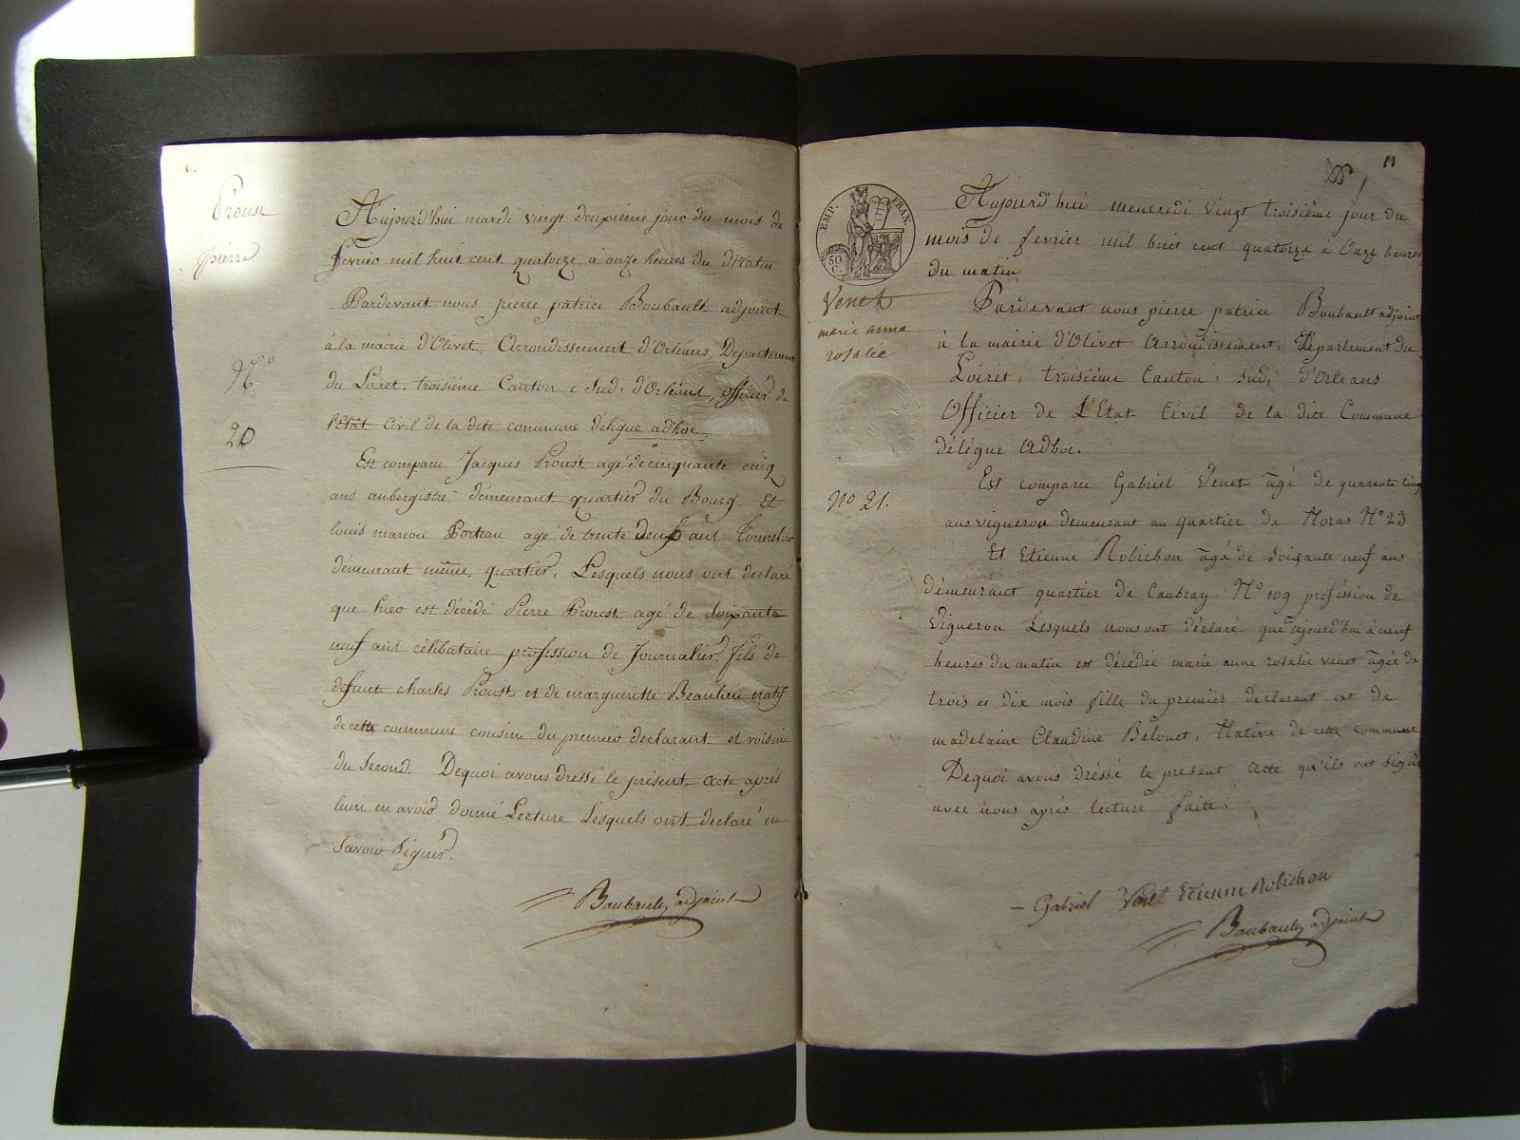 Proust
pierre
N°
20
Aujourd'hui mardi vingt deuxieme jour du mois de
fevrier mil huit cent quatorze a onze heures du Matin
Pardevant nous pierre patrice Boubault adjoint
à la mairie d'Olivet, Arrondissement d'Orléans, Département
du Loiret, troisième Canton, Sud, d'Orléans, officier de
l'Etat Civil de la dite commune délégué adhoc,
Est comparu Jacques Proust agé de cinquante cinq
ans aubergiste demeurant quartier du Bourg Et
louis marion Porteau agé de trente Deux ans Tonnelier
démeurant même, quartier, Lesquels nous ont declaré
que hier est décédé Pierre Proust agé de soixante
neuf ans célibataire profession de Journalier, fils de
defunt charles Proust et de marguerite Beaulieu natif
de cette commune cousin du premier declarant et voisin
du Second. Dequoi avons dressé le présent acte après
leur en avoir donné Lecture Lesquels ont declaré ne
Savoir Signer.
Boubault, adjoint
11
EMP. FRAN.
50
C.
Venet
marie anne
rosalie
No 21.
Aujourd'hui mercredi vingt troisième jour du
mois de fevrier mil huit cent quatorze à Onze heures
du matin
Pardevant nous pierre patrice Boubault adjoint
à la mairie d'Olivet Arrondissement, Département du
Loiret, troisième Canton, sud, d'Orleans
Officier de L'Etat Civil de la dite Commune
délégué Adhoc.
Est comparu Gabriel Venet agé de quarante cinq
ans vigneron demeurant au quartier de Noras N° 23
Et Etienne Robichon agé de soixante neuf ans
démeurant quartier de Caubray N° 109 profession de
Vigneron Lesquels nous ont déclaré que ajourd'hui à neuf
heures du matin est décédée marie anne rosalie venet agée de
trois et dix mois fille du premier declarant et de
madelaine Claudine Belouet, Native de cette commune
Dequoi avons dréssé le present Acte qu'ils ont signé
avec nous après lecture faite.
Gabriel Venet Etienne Robichon
Boubault, adjoint